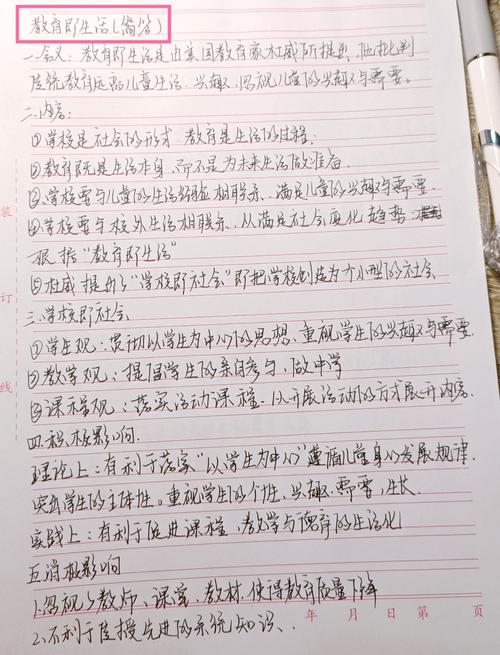 教育即生活(简答)
一.含义:教育即生活是由美国教育家杜威所提出,他批判
传统教育远离儿童生活、兴趣,忽视儿童的兴趣与需要。
二.内容:
①学校是社会的形式,教育是生活的过程.
②教育既是生活本身,而不是为未来生活做准备.
③学校要与儿童的生活经验相联系、满足儿童的兴趣与需要.
④学校要与校外生活相联系、从满足社会变化趋势.
根据“教育即生活”
⑤杜威提出了“学校即社会”即把学校创造为个小型的社会
三.学校即社会
①学生观:贯彻以学生为中心的思想、重视学生的兴趣与需要
②教学观:提倡学生的亲自参与,做中学
③课程观:落实活动课程.以开展活动的方式展开内容.
四.积极影响.
理论上:有利于落实“以学生为中心”遵循儿童身心发展规律.
突出学生的主体性。重视学生的个性,兴趣.需要,生长.
实践上:有利于促进课程,教学与德育的生活化
五消极影响
1.忽视了教师、课堂、教材,使得教育质量下降
2.不利于传授先进的系统知识、
年 月 日 第 页
装
订
线